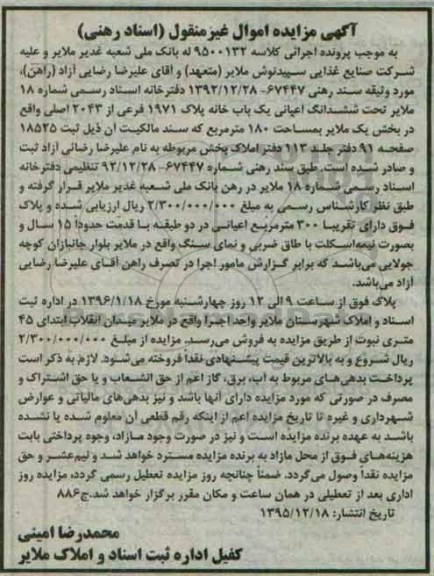 آگهی مزایده اموال غیرمنقول (اسناد رهنی)
به موجب پرونده اجرائی کلاسه ۹۵۰۰۱۳۲ له بانک ملی شعبه غدیر ملایر و علیه
شرکت صنایع غذایی سپیدنوش ملایر (متعهد) و آقای علیرضا رضایی آزاد (راهن)،
مورد وثیقه سند رهنی ۶۷۴۴۷- ۱۳۹۲/۱۲/۲۸ دفترخانه اسناد رسمی شماره ۱۸
ملایر تحت ششدانگ اعیانی یک باب خانه پلاک ۱۹۷۱ فرعی از ۲۰۴۳ اصلی واقع
در بخش یک ملایر بمساحت ۱۸۰ مترمربع که سند مالکیت آن ذیل ثبت ۱۸۵۲۵
صفحه ۹۱ دفتر جلد ۱۱۳ دفتر املاک بخش مربوطه به نام علیرضا رضائی آزاد ثبت
و صادر شده است. طبق سند رهنی شماره ۶۷۴۴۷- ۹۲/۱۲/۲۸ تنظیمی دفترخانه
اسناد رسمی شماره ۱۸ ملایر در رهن بانک ملی شعبه غدیر ملایر قرار گرفته و
طبق نظر کارشناس رسمی به مبلغ ۲/۳۰۰/۰۰۰/۰۰۰ ریال ارزیابی شده و پلاک
فوق دارای تقریبا ۳۰۰ مترمربع اعیانی در دو طبقه با قدمت حدوداً ۱۵ سال و
بصورت نیمه‌اسکلت با طاق ضربی و نمای سنگ واقع در ملایر بلوار جانبازان کوچه
جولایی می‌باشد که برابر گزارش مامور اجرا در تصرف راهن آقای علیرضا رضایی
آزاد می‌باشد.
پلاک فوق از ساعت ۹ الی ۱۲ روز چهارشنبه مورخ ۱۳۹۶/۱/۱۸ در اداره ثبت
اسناد و املاک شهرستان ملایر واحد اجرا واقع در ملایر میدان انقلاب ابتدای ۴۵
متری نبوت از طریق مزایده به فروش می‌رسد. مزایده از مبلغ ۲/۳۰۰/۰۰۰/۰۰۰
ریال شروع و به بالاترین قیمت پیشنهادی نقداً فروخته می‌شود. لازم به ذکر است
پرداخت بدهی‌های مربوط به آب، برق، گاز اعم از حق انشعاب و یا حق اشتراک و
مصرف در صورتی که مورد مزایده دارای آنها باشد و نیز بدهی‌های مالیاتی و عوارض
شهرداری و غیره تا تاریخ مزایده اعم از اینکه رقم قطعی آن معلوم شده یا نشده
باشد به عهده برنده مزایده است و نیز در صورت وجود مازاد، وجوه پرداختی بابت
هزینه‌های فوق از محل مازاد به برنده مزایده مسترد خواهد شد و نیم‌عشر و حق
مزایده نقداً وصول می‌گردد. ضمناً چنانچه روز مزایده تعطیل رسمی گردد، مزایده روز
اداری بعد از تعطیلی در همان ساعت و مکان مقرر برگزار خواهد شد.ج۸۸۶
تاریخ انتشار: ۱۳۹۵/۱۲/۱۸
محمدرضا امینی
کفیل اداره ثبت اسناد و املاک ملایر